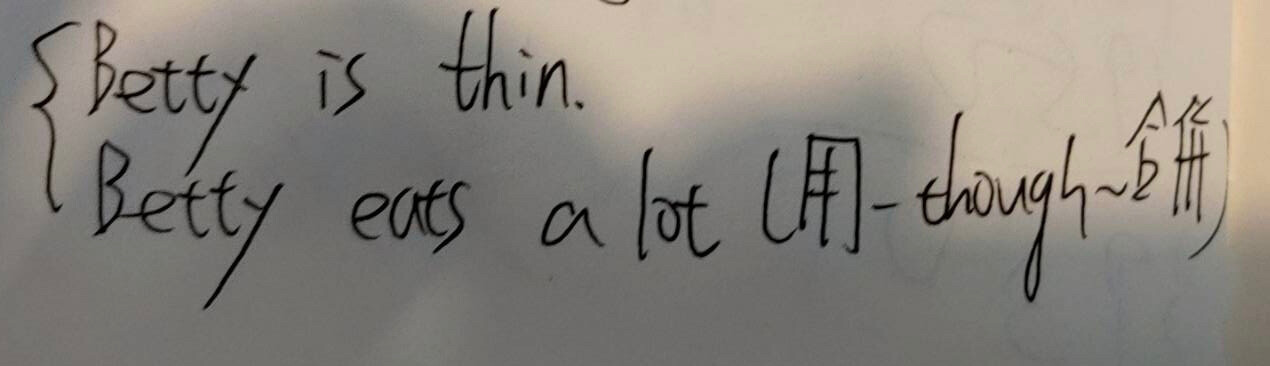 Betty is thin.
Betty eats a lot (用-though~合併)